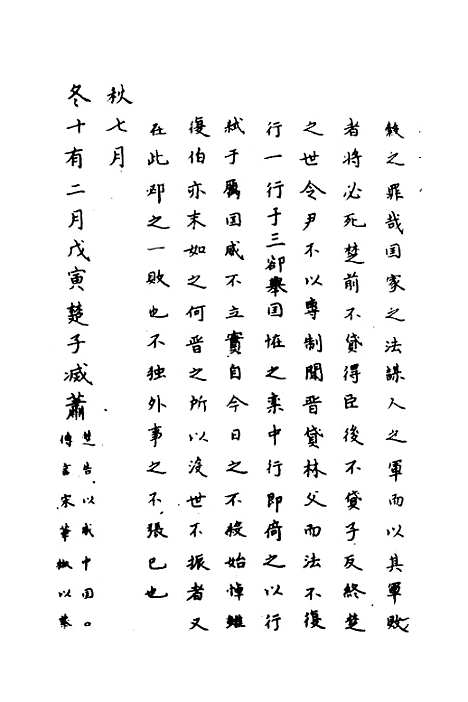 之罪哉国家之法謀人之軍而以其軍敗
者将必死楚前不貸得臣後不貸子反終楚
之世令尹不以專制聞晋貸林父而法不復
行一行于三郤舉国恠之栾中行即倚之以行
弑于厲国威不立實自今日之不殺始悼雖
復伯亦末如之何晋之所以沒世不振者又
在此邲之一敗也不独外事之不張已也
秋七月
冬十有二月戊寅楚子滅蕭
楚告以滅中国
傳言宋華椒以蔡